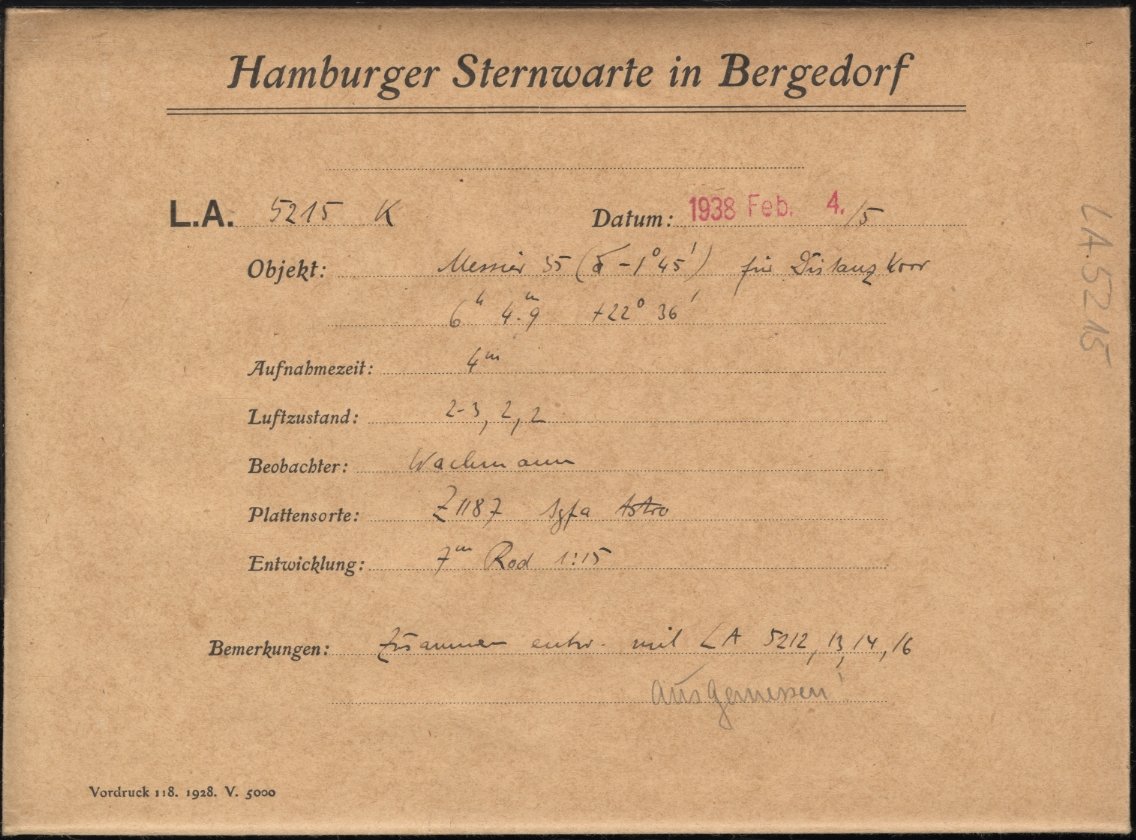 Hamburger Sternwarte in Bergedorf
L.A. 5215 K Datum: 1938 Feb. 4./5
Objekt: Messier 35 (δ -1° 45') für Distanzkorr
6ʰ 4.ᵐ9 +22° 36'
Aufnahmezeit: 4ᵐ
Luftzustand: 2-3, 2, 2
Beobachter: Wachmann
Plattensorte: Z1187 Agfa Astro
Entwicklung: 7ᵐ Rod 1:15
Bemerkungen: Zusammen entw. mit LA 5212, 13, 14, 16
Ausgemessen!
Vordruck 118. 1928. V. 5000
LA. 5215